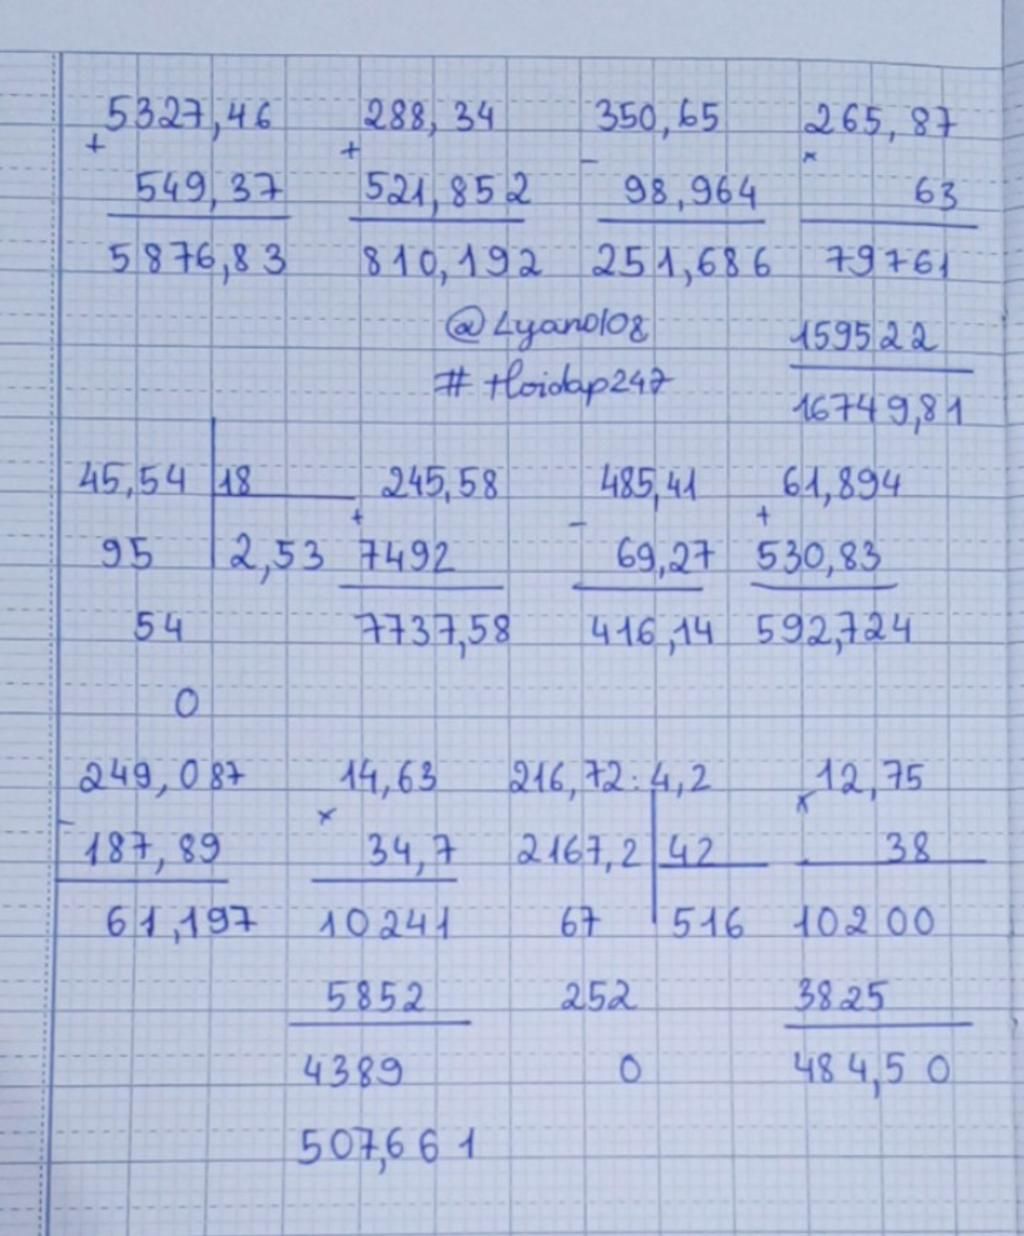 5327,46 288,34 350,65 265,87
+ + - ×
549,37 521,852 98,964 63
5876,83 810,192 251,686 79761
@Lyano108 159522
#Hoidap247
16749,81
45,54 18 245,58 485,41 61,894
+ - +
95 2,53 7492 69,27 530,83
54 7737,58 416,14 592,724
0
249,087 14,63 216,72:4,2 12,75
- × ×
187,89 34,7 2167,2 42 38
61,197 10241 67 516 10200
5852 252 3825
4389 0 484,50
507,661